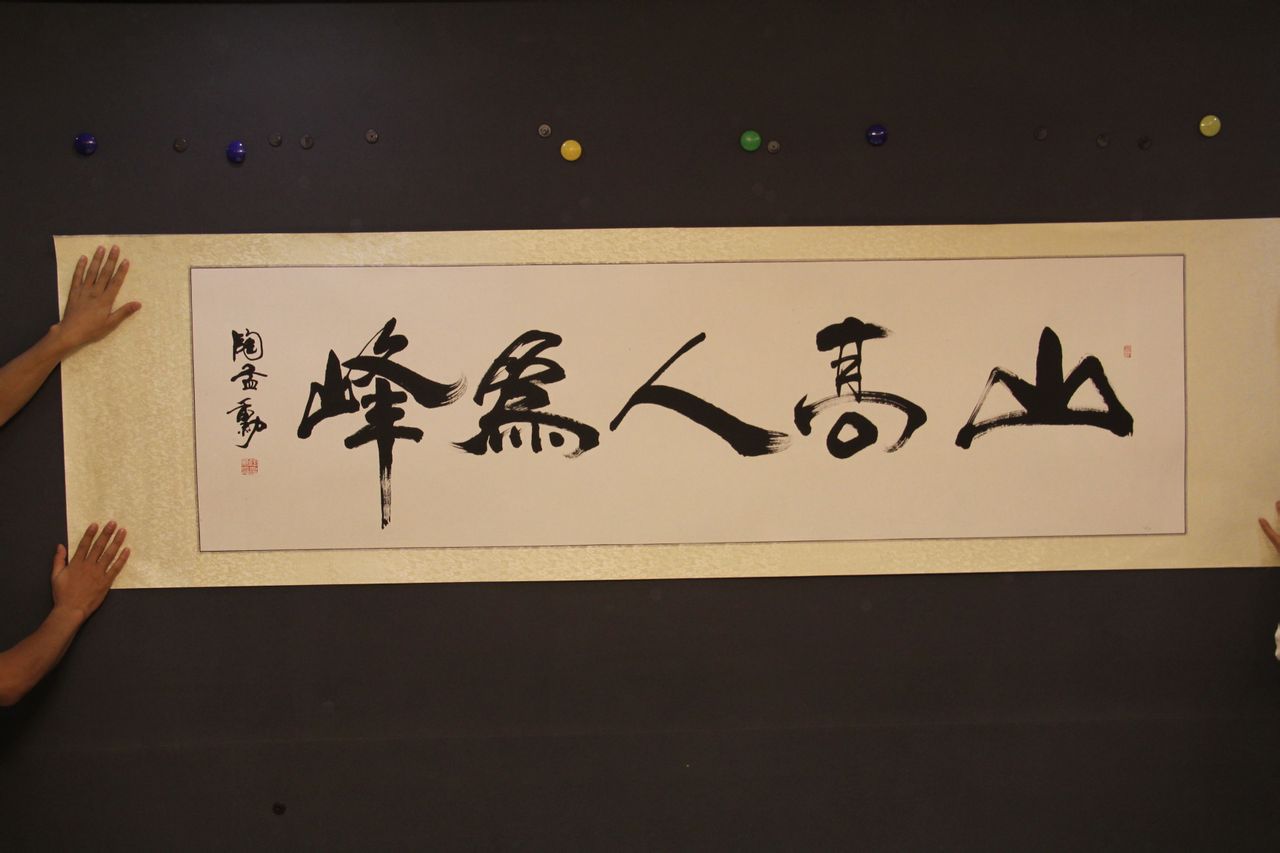 山高人為峰
陶孟勳